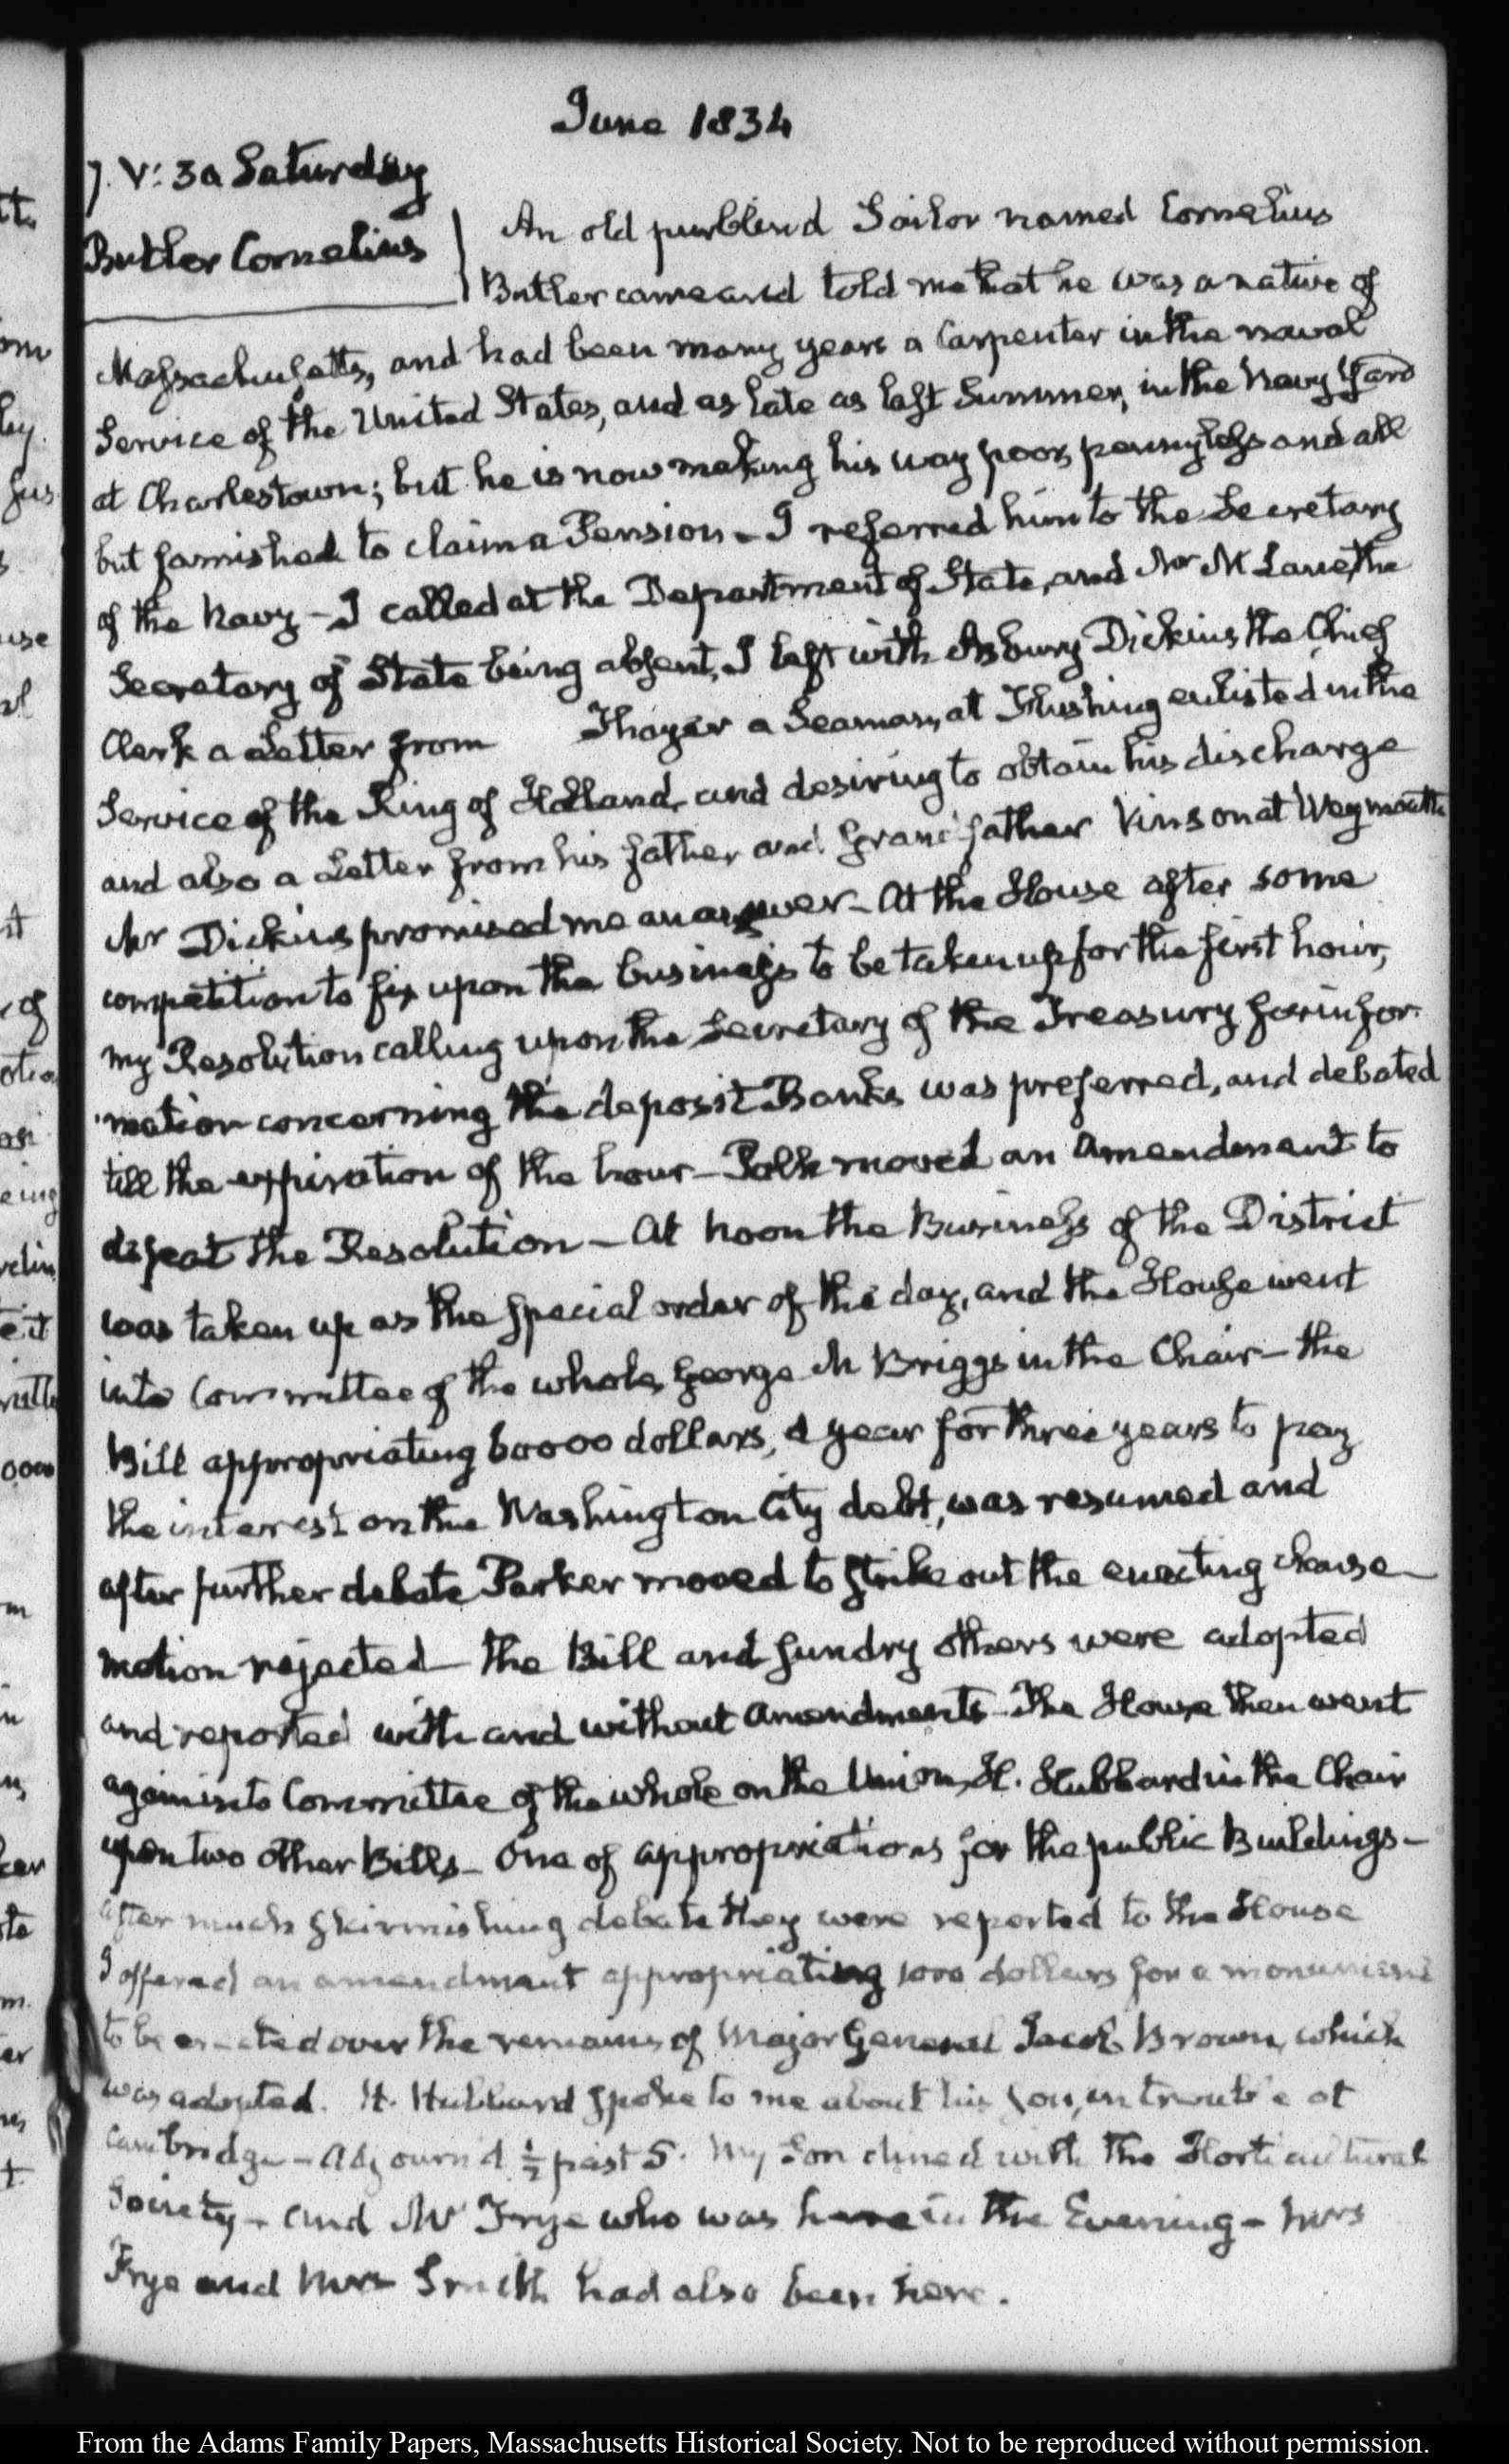 June 1834
7. V: 30 Saturday
Butler Cornelius
An old purblind Sailor named Cornelius
Butler came and told me that he was a native of
Massachusetts, and had been many years a Carpenter in the naval
Service of the United States, and as late as last Summer, in the Navy Yard
at Charlestown; but he is now making his way poor, pennyless and all
but famished to claim a Pension – I referred him to the Secretary
of the Navy – I called at the Department of State, and Mr McLane, the
Secretary of State being absent, I left with Asbury Dickins the Chief
Clerk a Letter from Thayer a Seaman, at Flushing enlisted in the
Service of the King of Holland, and desiring to obtain his discharge
and also a Letter from his father and Grandfather Vinson at Weymouth
Mr Dickins promised me an answer – At the House after some
competition to fix upon the business to be taken up for the first hour,
my Resolution calling upon the Secretary of the Treasury for infor-
mation concerning the deposit Banks was preferred, and debated
till the expiration of the hour – Polk moved an Amendment to
defeat the Resolution – At noon the Business of the District
was taken up as the special order of the day, and the House went
into Committee of the whole, George N Briggs in the Chair – the
Bill appropriating 60000 dollars, a year for three years to pay
the interest on the Washington City debt, was resumed and
after further debate Parker moved to strike out the enacting clause –
motion rejected – the Bill and sundry others were adopted
and reported with and without amendments – The House then went
again into Committee of the whole on the Union, H. Hubbard in the Chair
upon two other Bills – One of appropriations for the public Buildings –
after much skirmishing debate they were reported to the House
I offered an amendment appropriating 1000 dollars for a monument
to be erected over the remains of Major General Jacob Brown, which
was adopted. H. Hubbard spoke to me about his Son, in trouble at
Cambridge – Adjourn'd ½ past 5. My Son dined with the Horticultural
Society – and Mr Frye who was here in the Evening – Mrs
Frye and Mrs Smith had also been here.
From the Adams Family Papers, Massachusetts Historical Society. Not to be reproduced without permission.